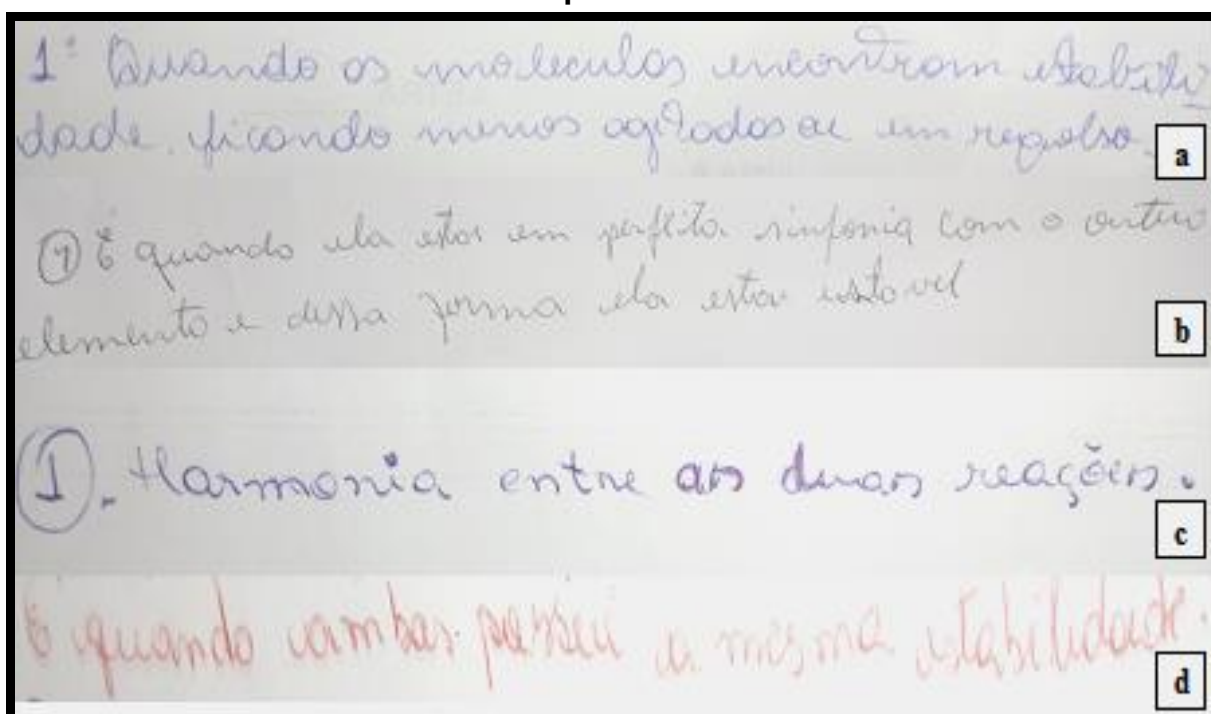 1ª Quando as moleculas encontram estabili
dade, ficando menos agitadas ou em repolso.
a
① É quando ela esta em perfeita sinfonia com o outro
elemento e dessa forma ela esta estavel
b
①. Harmonia entre as duas reações.
c
É quando ambas possui a mesma estabilidade.
d